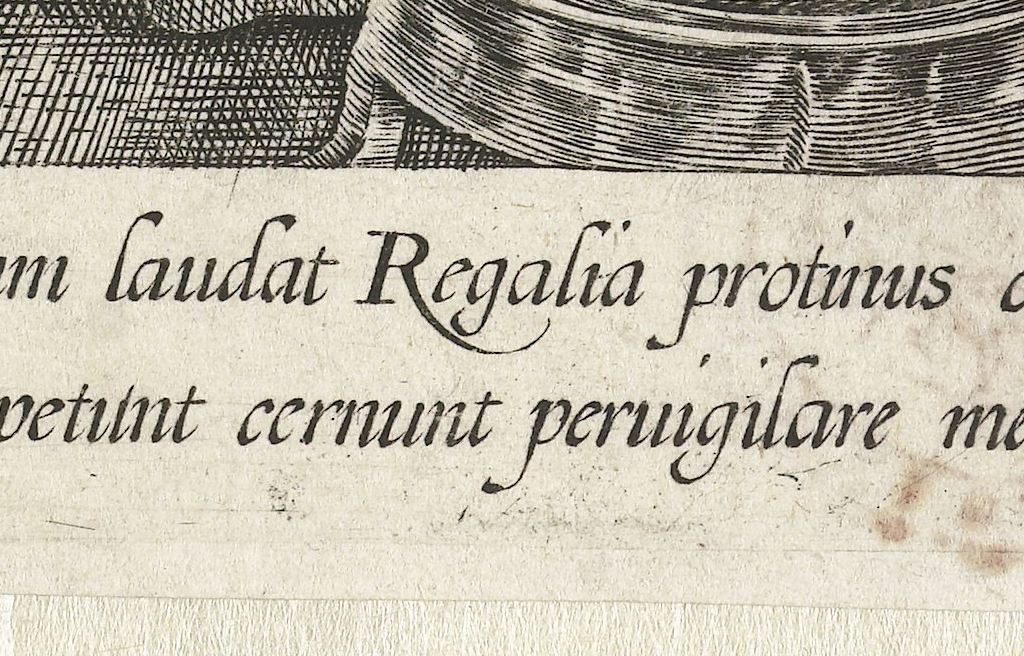 um laudat Regalia protinus
petunt cernunt peruigilare me